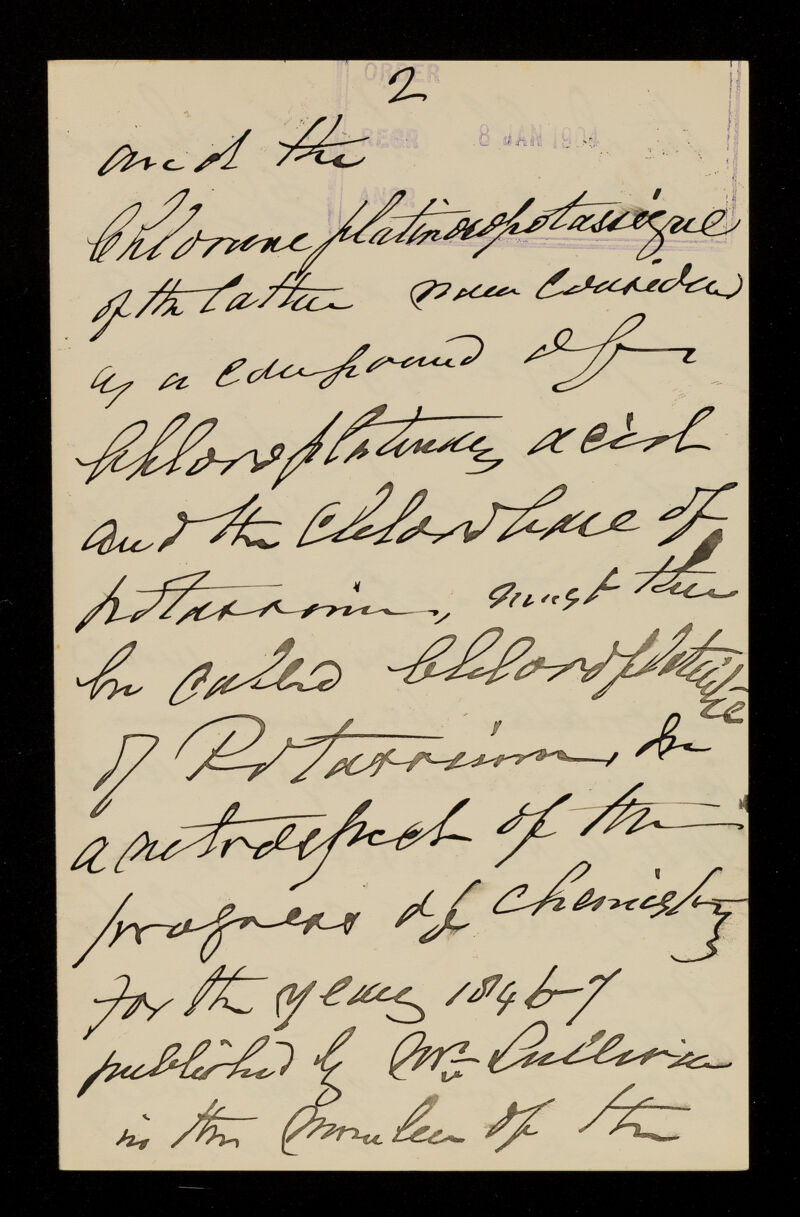 ORDER
2
REGR 8 JAN 1904
and the
ANGR
Chlorure platinosopotassique
of the latter now considered
as a compound of
Chloroplatinous acid
and the Chlorobase of
potassium, must then
be called Chloroplatinite
of Potassium, In
a retrospect of the
progress of chemistry
for the years 1846-7
published by Mr. Sullivan
in the Number of the